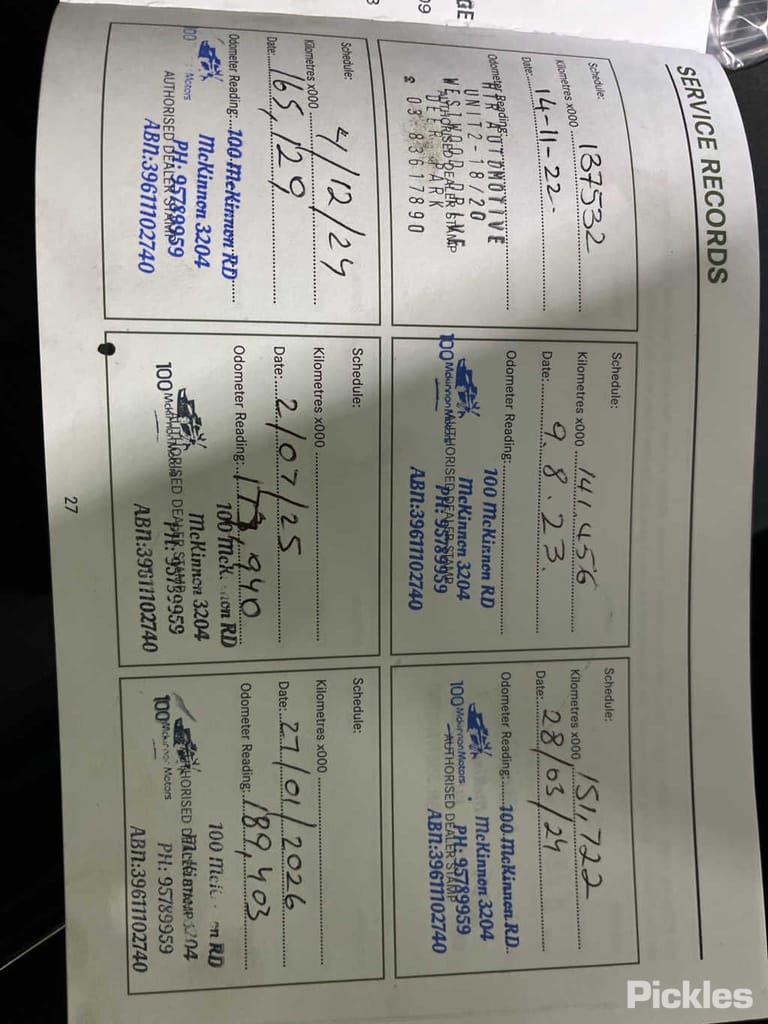 SERVICE RECORDS
Schedule:
Kilometres x000 137532
Date: 14-11-22
Odometer Reading:
AUTOMOTIVE
UNIT 2-18/20
WESTWOOD DRIVE
AUTHORISED DEALER STAMP
DEER PARK
03-83617890
Schedule:
Kilometres x000 141.456
Date: 9.8.23.
Odometer Reading:
100 McKinnon RD
100 McKinnon Motors
McKinnon 3204
AUTHORISED DEALER STAMP
PH: 95789959
ABN:39611102740
Schedule:
Kilometres x000 151,722
Date: 28/03/24
Odometer Reading:
100 McKinnon RD
100 McKinnon Motors
McKinnon 3204
AUTHORISED DEALER STAMP
PH: 95789959
ABN:39611102740
Schedule:
4/12/24
Kilometres x000
Date: 165,129
Odometer Reading:
100 McKinnon RD
100
Motors
McKinnon 3204
AUTHORISED DEALER STAMP
PH: 95789959
ABN:39611102740
Schedule:
Kilometres x000
Date: 2/07/25
Odometer Reading: 173,940
100 McK on RD
100 McKinnon Motors
McKinnon 3204
AUTHORISED DEALER STAMP
PH: 95789959
ABN:39611102740
Schedule:
Kilometres x000
Date: 27/01/2026
Odometer Reading: 189,403
100 McK on RD
100 McKinnon Motors
McKinnon 3204
AUTHORISED DEALER STAMP
PH: 95789959
ABN:39611102740
27
Pickles